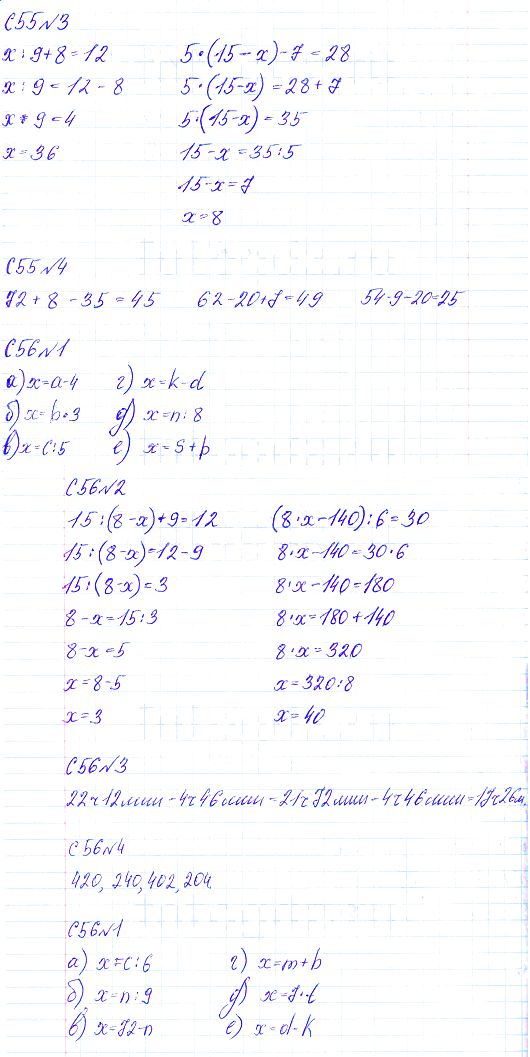 С55№3
x : 9 + 8 = 12 5·(15 - x) - 7 = 28
x : 9 = 12 - 8 5·(15-x) = 28 + 7
x : 9 = 4 5·(15-x) = 35
x = 36 15 - x = 35 : 5
15 - x = 7
x = 8
С55№4
72 + 8 - 35 = 45 62 - 20 + 7 = 49 54-9-20=25
С56№1
а) x = a-4 г) x = k - d
б) x = b·3 д) x = n : 8
в) x = c : 5 е) x = s + p
С56№2
15 : (8 - x) + 9 = 12 (8·x - 140) : 6 = 30
15 : (8-x) = 12 - 9 8·x - 140 = 30·6
15 : (8-x) = 3 8·x - 140 = 180
8 - x = 15 : 3 8·x = 180 + 140
8 - x = 5 8·x = 320
x = 8-5 x = 320 : 8
x = 3 x = 40
С56№3
22ч12мин - 4ч46мин = 21ч72мин - 4ч46мин = 17ч26м.
С56№4
420, 240, 402, 204.
С56№1
а) x = c : 6 г) x = m + b
б) x = n : 9 д) x = 7·t
в) x = 72-n е) x = d - k